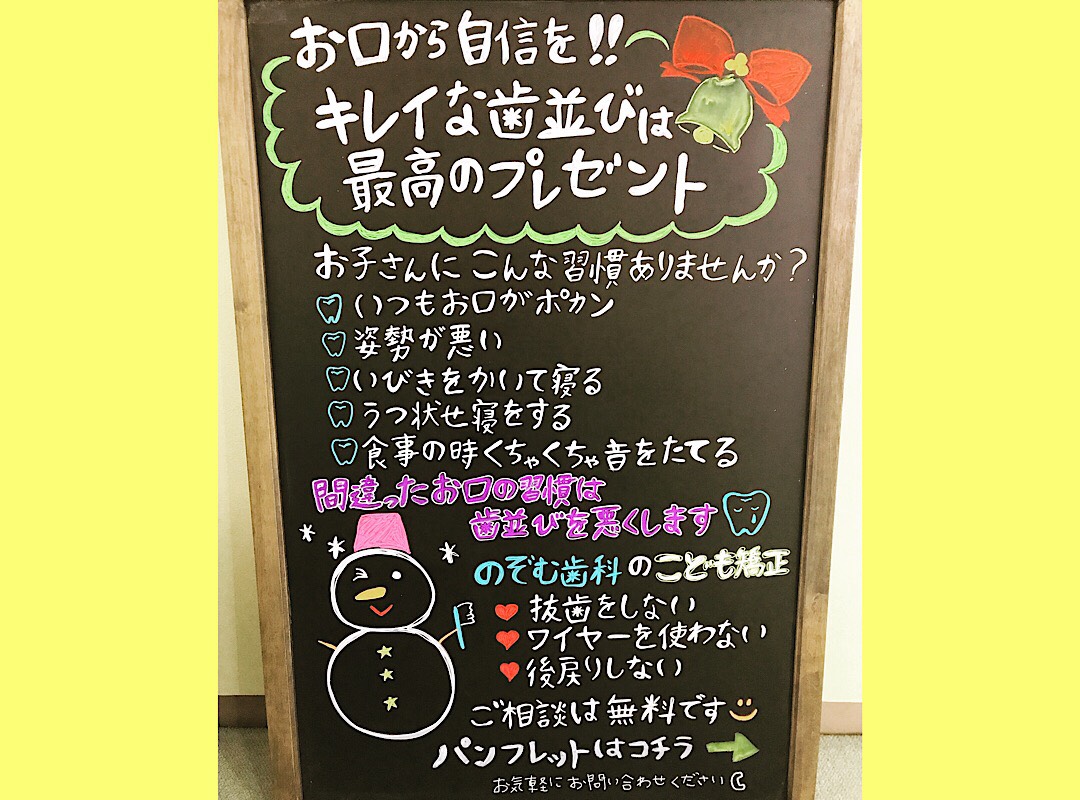 お口から自信を!!
キレイな歯並びは
最高のプレゼント
お子さんにこんな習慣ありませんか?
いつもお口がポカン
姿勢が悪い
いびきをかいて寝る
うつ状せ寝をする
食事の時くちゃくちゃ音をたてる
間違ったお口の習慣は
歯並びを悪くします
のぞむ歯科のこども矯正
抜歯をしない
ワイヤーを使わない
後戻りしない
ご相談は無料です
パンフレットはコチラ
お気軽にお問い合わせください